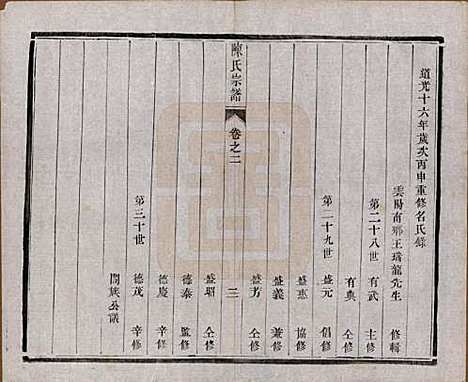 道光十六年歲次丙申重修名氏錄
雲陽南鄉王瑞龍先生 修輯
第二十八世 有武 主修
有典 仝修
第二十九世 盛元 倡修
盛惠 協修
盛義 兼修
盛芳 仝修
陳氏宗譜 卷之二 三
盛昭 仝修
德泰 監修
德慶 仝修
第三十世 德茂 辛修
閤族公議